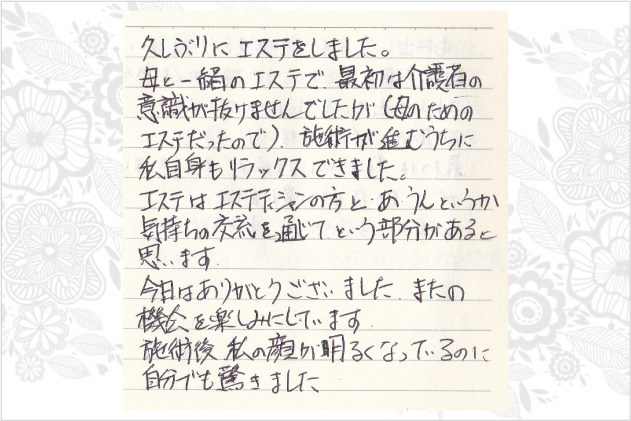 久しぶりにエステをしました。
母と一緒のエステで、最初は介護者の
意識が抜けませんでしたが(母のための
エステだったので)、施術が進むうちに
私自身もリラックスできました。
エステはエステティシャンの方と、あうんというか
気持ちの交流を通じてという部分があると
思います。
今日はありがとうございました。またの
機会を楽しみにしています。
施術後、私の顔が明るくなっているのに
自分でも驚きました